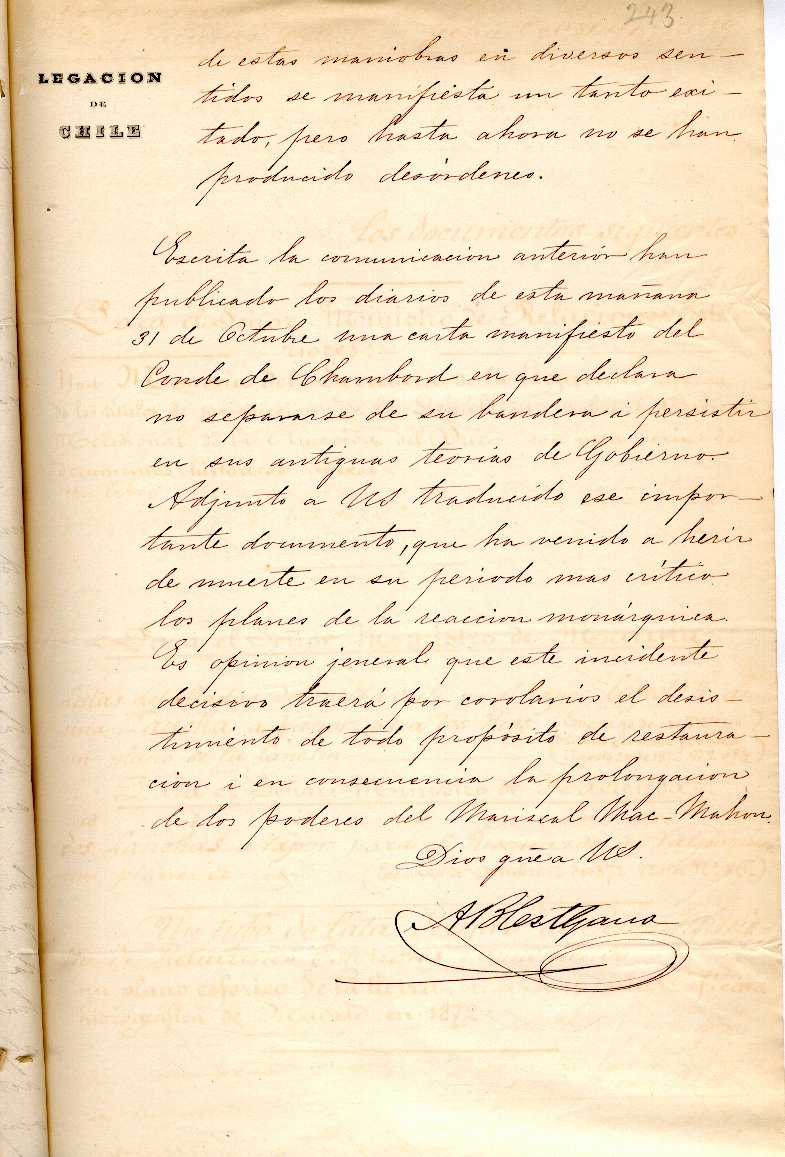 243
LEGACION
DE
CHILE
de estas maniobras en diversos sen-
tidos se manifiesta un tanto exi-
tado, pero hasta ahora no se han
producido desórdenes.
Escrita la comunicacion anterior han
publicado los diarios de esta mañana
31 de Octubre una carta manifiesto del
Conde de Chambord en que declara
no separarse de su bandera i persistir
en sus antiguas teorías de Gobierno.
Adjunto a US traducido ese impor-
tante documento, que ha venido a herir
de muerte en su periodo mas crítico
los planes de la reaccion monárquica.
Es opinion jeneral que este incidente
decisivo traerá por corolarios el desis-
timiento de todo propósito de restaura-
cion i en consecuencia la prolongacion
de los poderes del Mariscal Mac-Mahon.
Dios gue a US.
A Blest Gana